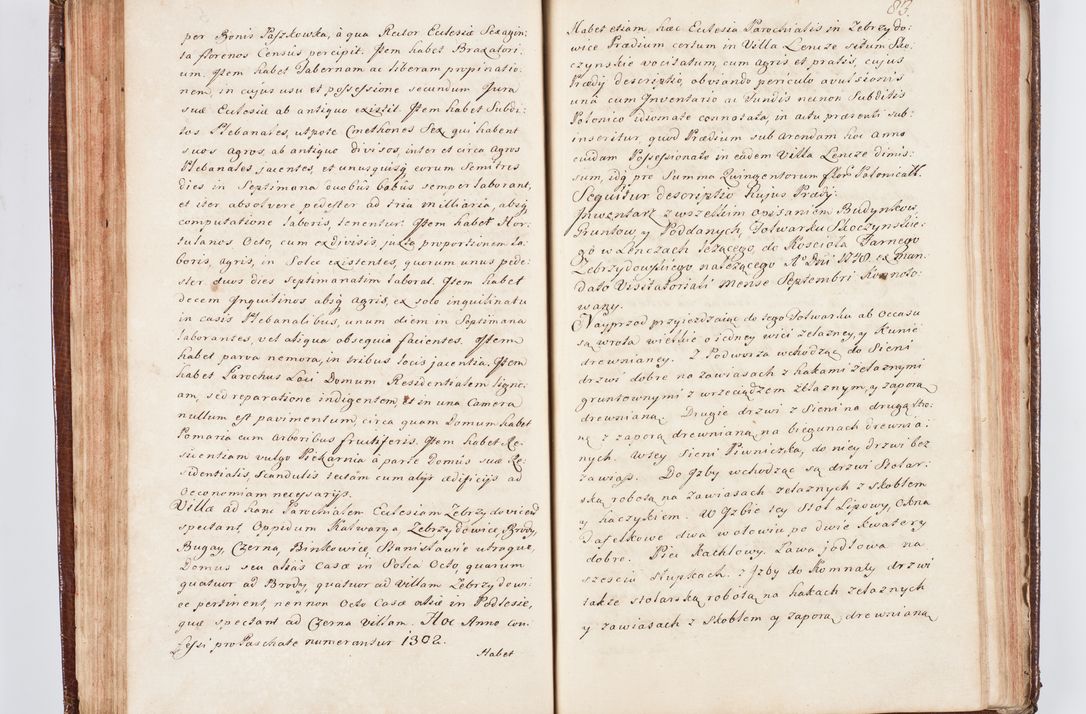 per Bonis Paszkowka, à qua Rector Ecclesiæ Sexagin:
ta florenos Census percipit. Item habet Braxatori:
um. Item habet Tabernam ac liberam propinatio:
nem, in cujus usu et possessione secundum Jura
suæ Ecclesiæ ab antiquo existit. Item habet Subdi:
tos Plebanales, utpote Cmethones Sex, qui habent
suos agros, ab antiquo divisos, inter et circa agros
Plebanales jacentes, et unusquisq eorum Semitres
dies in Septimana duobus bobus semper laborant,
et iter absolvere pedester ad tria milliaria, absq
computatione laboris, tenentur. Item habet Hor:
tulanos Octo, cum exdivisis, juxta proportionem la:
boris, agris, in Solec existentes, quorum unus pede:
ster duos dies septimanatim laborat. Item habet
decem Inquilinos absq agris, ex solo inquilinatu
in casis Plebanalibus, unum diem in Septimana
laborantes, vel aliqua obsequia facientes. Item
habet parva nemora, in tribus locis jacentia. Item
habet Parochus Loci Domum Residentialem ligne:
am, sed reparatione indigentem, et in una Camera
nullum est pavimentum, circa quam Domum habet
Pomaria cum arboribus fructiferis. Item habet Re:
sidentiam vulgo Piekarnia à parte Domus suæ Re:
sidentialis, Scandulis tectam cum alijs ædificijs ad
Oeconomiam necessarijs.
Villæ ad hanc Parochialem Ecclesiam Zebrzydovicen
spectant, Oppidum Kalwarya Zebrzydowice, Brody,
Bugay, Czerna, Binkowice, Stanisławie utraque,
Domus seu alias Casæ in Solca Octo, quarum
quatuor ad Brody, quatuor ad Villam Zebrzydowi:
ce pertinent, nec non Octo Casæ aliæ in Podlesie,
quæ spectant ad Czerna Villam. Hoc Anno con:
fessi pro Paschate numerantur 1302.
Habet
83
Habet etiam hæc Ecclesia Parochialis in Zebrzydo:
wice Prædium certum in Villa Lencze situm Sko:
czynskie vocitatum, cum agris et pratis, cujus
Prædij descriptio, obviando periculo avulsionis
una cum Inventario ac Fundis nec non Subditis
Polonico idiomate connotata, in actu præsenti sub:
inseritur, quod Prædium sub arendam hoc anno
cuidam Possessionato in eadem Villa Lencze dimis:
sum, idq pro Summa Quingentorum flor: Polonicall.
Sequitur descriptio hujus Prædij.
Inwentarz z wszelkim opisaniem Budynkow
Gruntow y Poddanych, Folwarku Skoczynskie:
go w Lenczach leżącego, do Kościoła Farnego
Zebrzydowskiego należącego Aº Dni 1748. ex man:
dato Visitatoriali Mense Septembri Konnoto:
wany.
Nayprzod przyieżdzaiąc do tego Folwarku ab Occasu
są wrota wielkie o iedney wici żelazney, y Kunie
drewnianey. Z Podworza wchodząc do Sieni
drzwi dobre na zawiasach z hakami żelaznymi
gruntownymi z wrzeciądzem żelaznym, y zaporą
drewnianą. Drugie drzwi z Sieni na drugą stro:
nę z zaporą drewnianą na biegunach drewnia:
nych. W tey Sieni Piwniczka, do niey drzwi bez
zawias. Do Izby wchodząc są drzwi Stolar:
ską robotą na zawiasach żelaznych z skoblem
y haczykiem. W Izbie tey Stoł Lipowy, Okna
Tafelkowe dwa w ołowiu po dwie kwatery
dobre. Piec Kachlowy. Ława jodłowa na
sześciu słupkach. z Izby do Komnaty drzwi
także stolarską robotą na hakach żelaznych
y zawiasach z skoblem y zaporą drewnianą